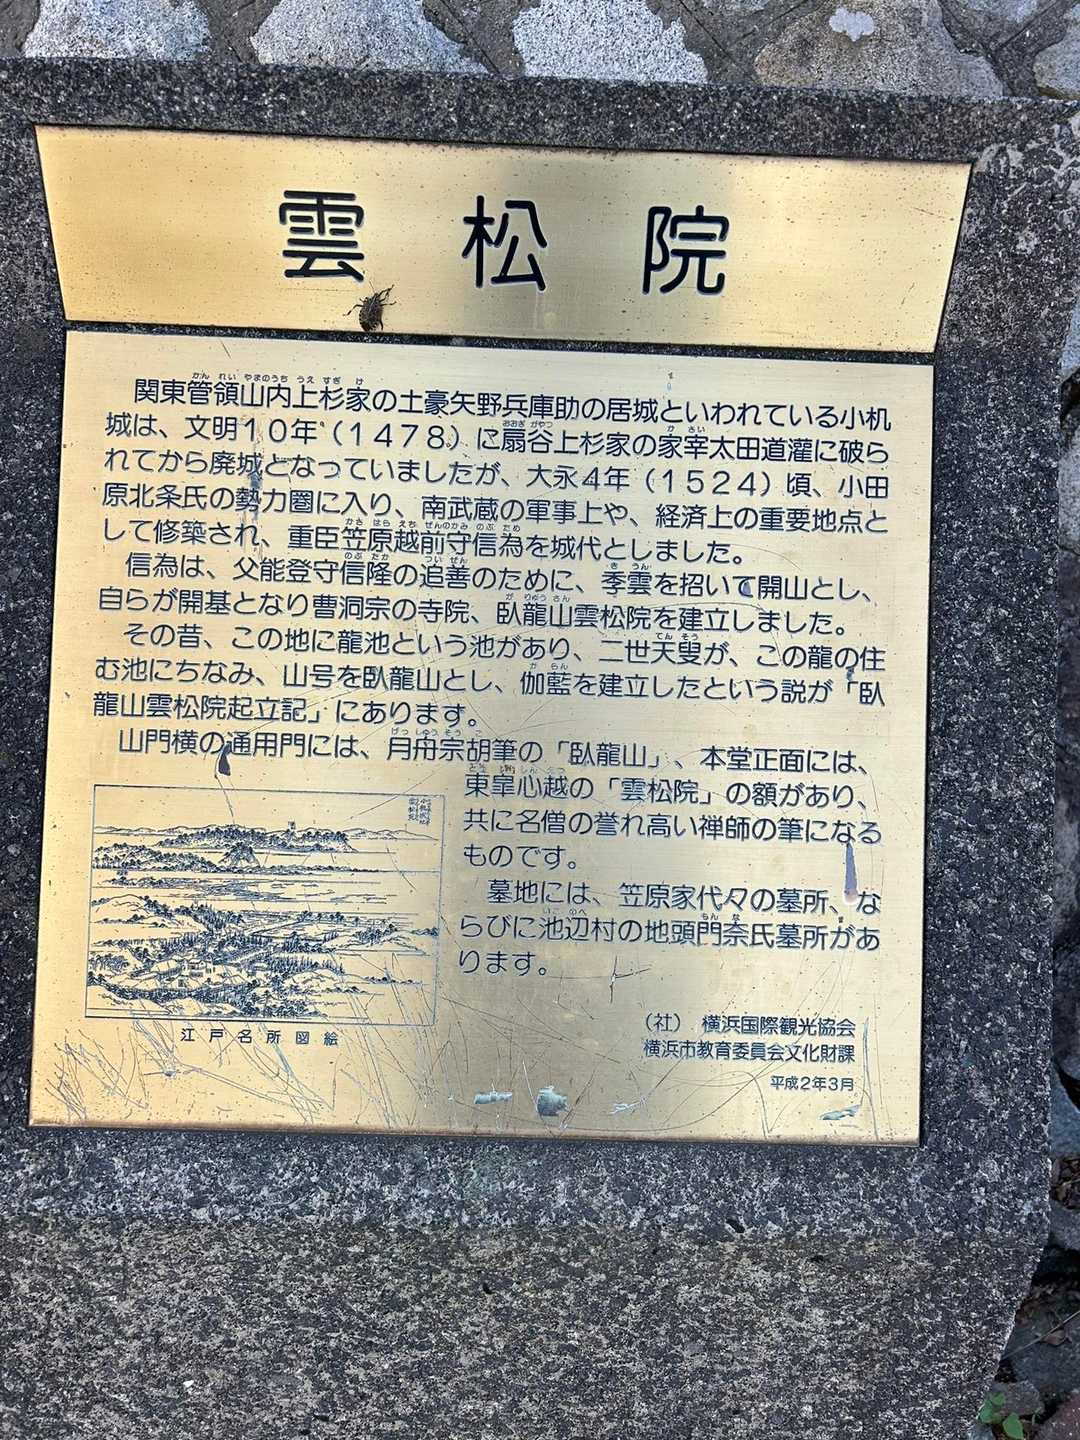 雲松院
関東管領山内上杉家の土豪矢野兵庫助の居城といわれている小机
城は、文明10年(1478)に扇谷上杉家の家宰太田道灌に破ら
れてから廃城となっていましたが、大永4年(1524)頃、小田
原北条氏の勢力圏に入り、南武蔵の軍事上や、経済上の重要地点と
して修築され、重臣笠原越前守信為を城代としました。
信為は、父能登守信隆の追善のために、季雲を招いて開山とし、
自らが開基となり曹洞宗の寺院、臥龍山雲松院を建立しました。
その昔、この地に龍池という池があり、二世天叟が、この龍の住
む池にちなみ、山号を臥龍山とし、伽藍を建立したという説が「臥
龍山雲松院起立記」にあります。
山門横の通用門には、月舟宗胡筆の「臥龍山」、本堂正面には、
東皐心越の「雲松院」の額があり、
共に名僧の誉れ高い禅師の筆になる
ものです。
墓地には、笠原家代々の墓所、な
らびに池辺村の地頭門奈氏墓所があ
ります。
江戸名所図絵
(社) 横浜国際観光協会
横浜市教育委員会文化財課
平成2年3月